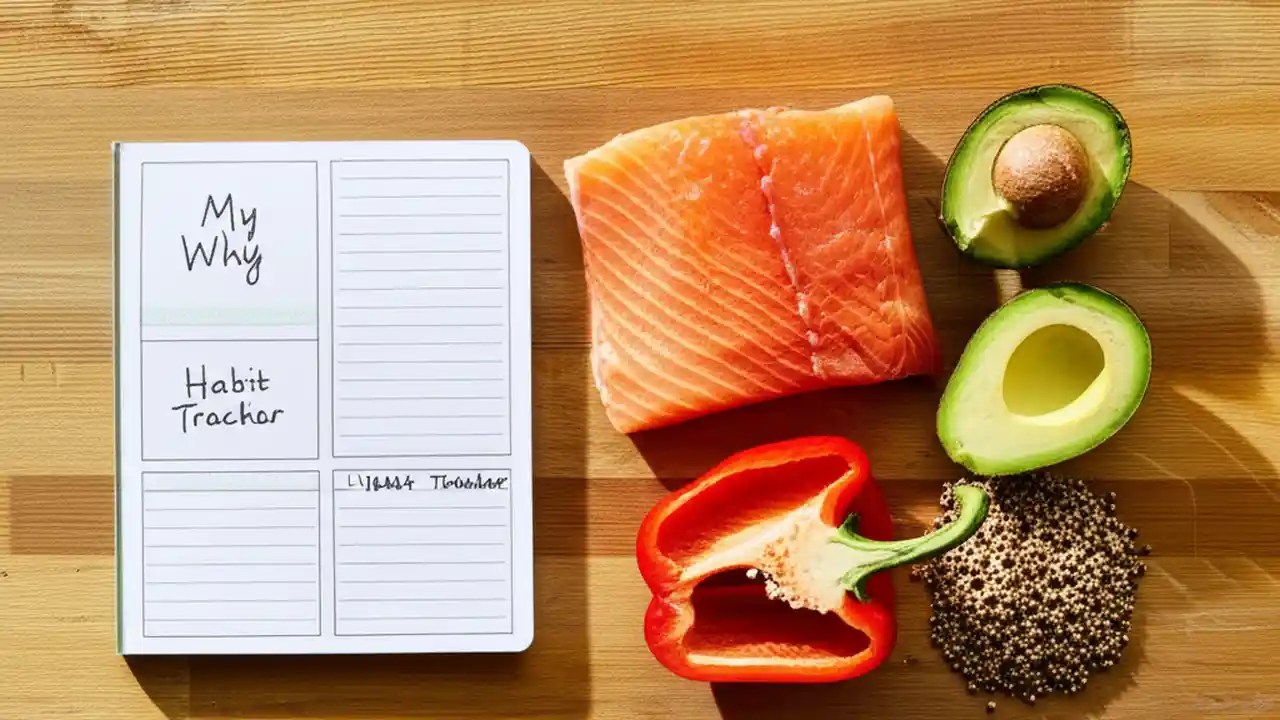 My
Why
Habit
Tracker